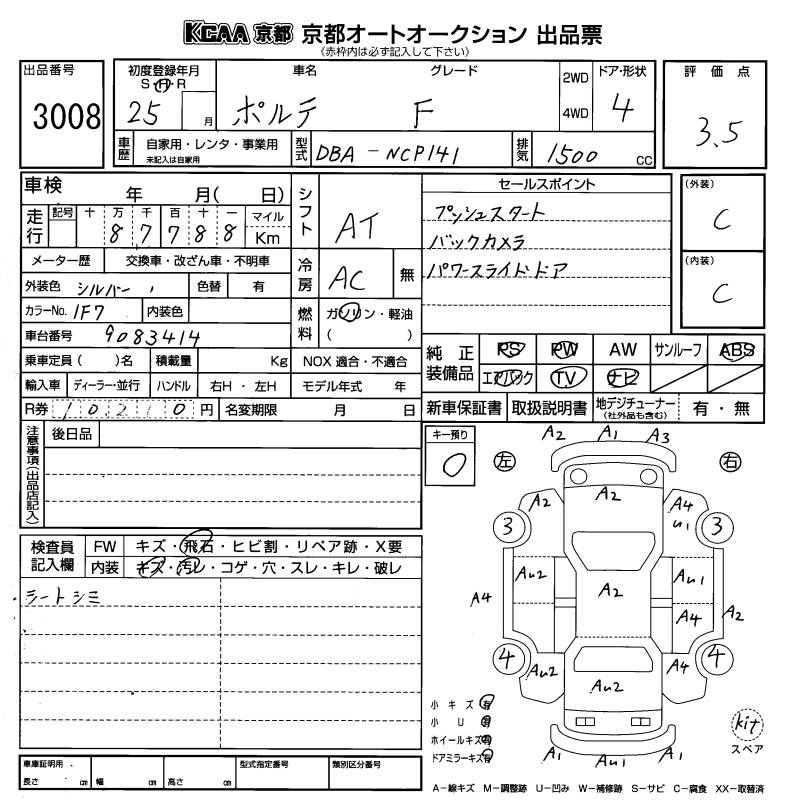 KCAA 京都 京都オートオークション 出品票
(赤枠内は必ず記入して下さい)
出品番号
3008
初度登録年月
S・H・R
25 月
車名
ポルテ
グレード
F
2WD
4WD
ドア・形状
4
評価点
3.5
車歴
自家用・レンタ・事業用
未記入は自家用
型式
DBA-NCP141
排気
1500 CC
車検 年 月( 日)
走行
記号 十 万 千 百 十 一 マイル
8 7 7 8 8 Km
メーター歴 交換車・改ざん車・不明車
外装色 シルバー
色替 有
カラーNo. 1F7
内装色
車台番号 9083414
乗車定員( )名 積載量 Kg
輸入車 ディーラー・並行 ハンドル 右H・左H
R券 10210円
名変期限 月 日
シフト AT
冷房 AC 無
燃料 ガソリン・軽油
( )
NOX 適合・不適合
モデル年式 年
セールスポイント
プッシュスタート
バックカメラ
パワースライドドア
(外装)
C
(内装)
C
純正装備品
PS PW AW サンルーフ ABS
エアバック TV ナビ
新車保証書 取扱説明書 地デジチューナー(社外品も含む) 有・無
注意事項(出品店記入)
後日品
キー預り
0
検査員記入欄
FW キズ・飛石・ヒビ割・リペア跡・X要
内装 キズ・汚レ・コゲ・穴・スレ・キレ・破レ
シートシミ
左 右
A2 A1 A3
A2 A2 A4 U1
3 3
AU2 A2 AU1
A4 A4 A2
4 4
AU2 AU2 A4
A1 AU1 A1
小キズ有
小U有
ホイールキズ有
ドアミラーキズ有
kit
スペア
車庫証明用
長さ cm 幅 cm 高さ cm
型式指定番号
類別区分番号
A-線キズ M-調整跡 U-凹み W-補修跡 S-サビ C-腐食 XX-取替済